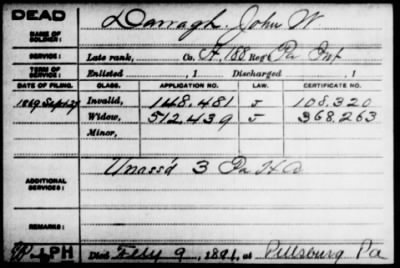 DEAD
NAME OF SOLDIER: Darragh, John W.
SERVICE: Late rank, Co. H, 188 Reg't Pa Inf
TERM OF SERVICE: Enlisted , 1 Discharged , 1
DATE OF FILING. CLASS. APPLICATION NO. LAW. CERTIFICATE NO.
1869 Sept 27 Invalid, 148.481 J 108.320
Widow, 512.439 J 368.263
Minor,
ADDITIONAL SERVICES: Unass'd 3 Pa H A
REMARKS:
PH Died Feby 9, 1891, at Pittsburg Pa